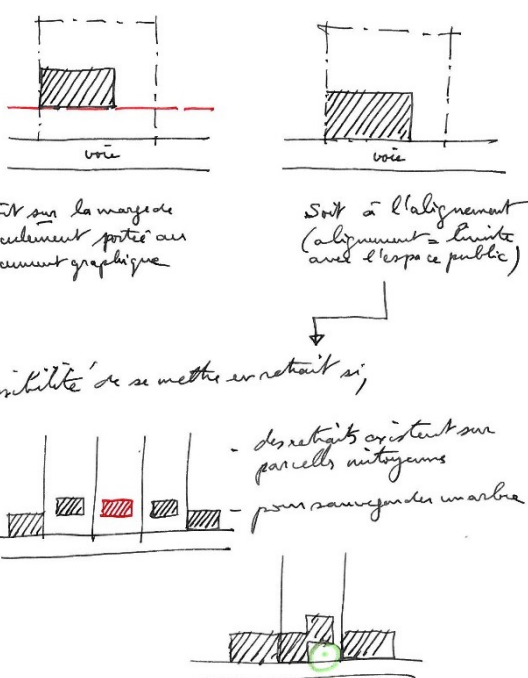 voie
voie
sur la marge de
portée au
graphique
Soit à l'alignement
(alignement = limite
avec l'espace public)
de se mettre en retrait si,
- des retraits existent sur
parcelles mitoyennes
- pour sauvegarder un arbre